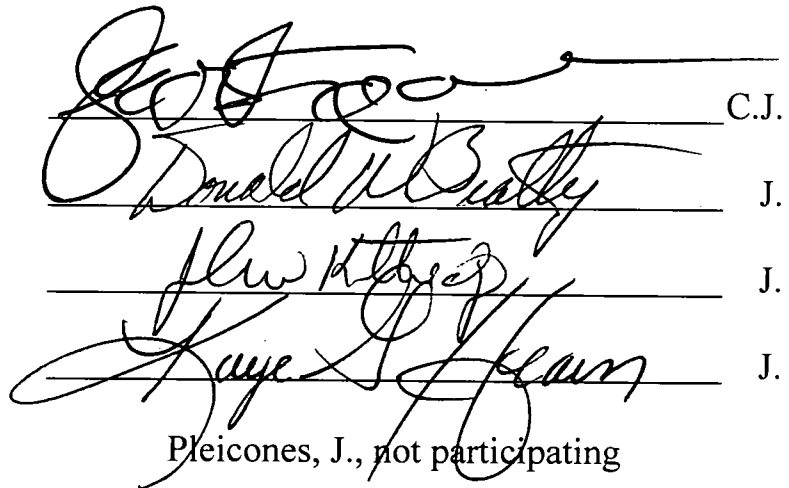 C.J.
Donald W Beatty J.
John Kittredge J.
Kaye G Hearn J.
Pleicones, J., not participating